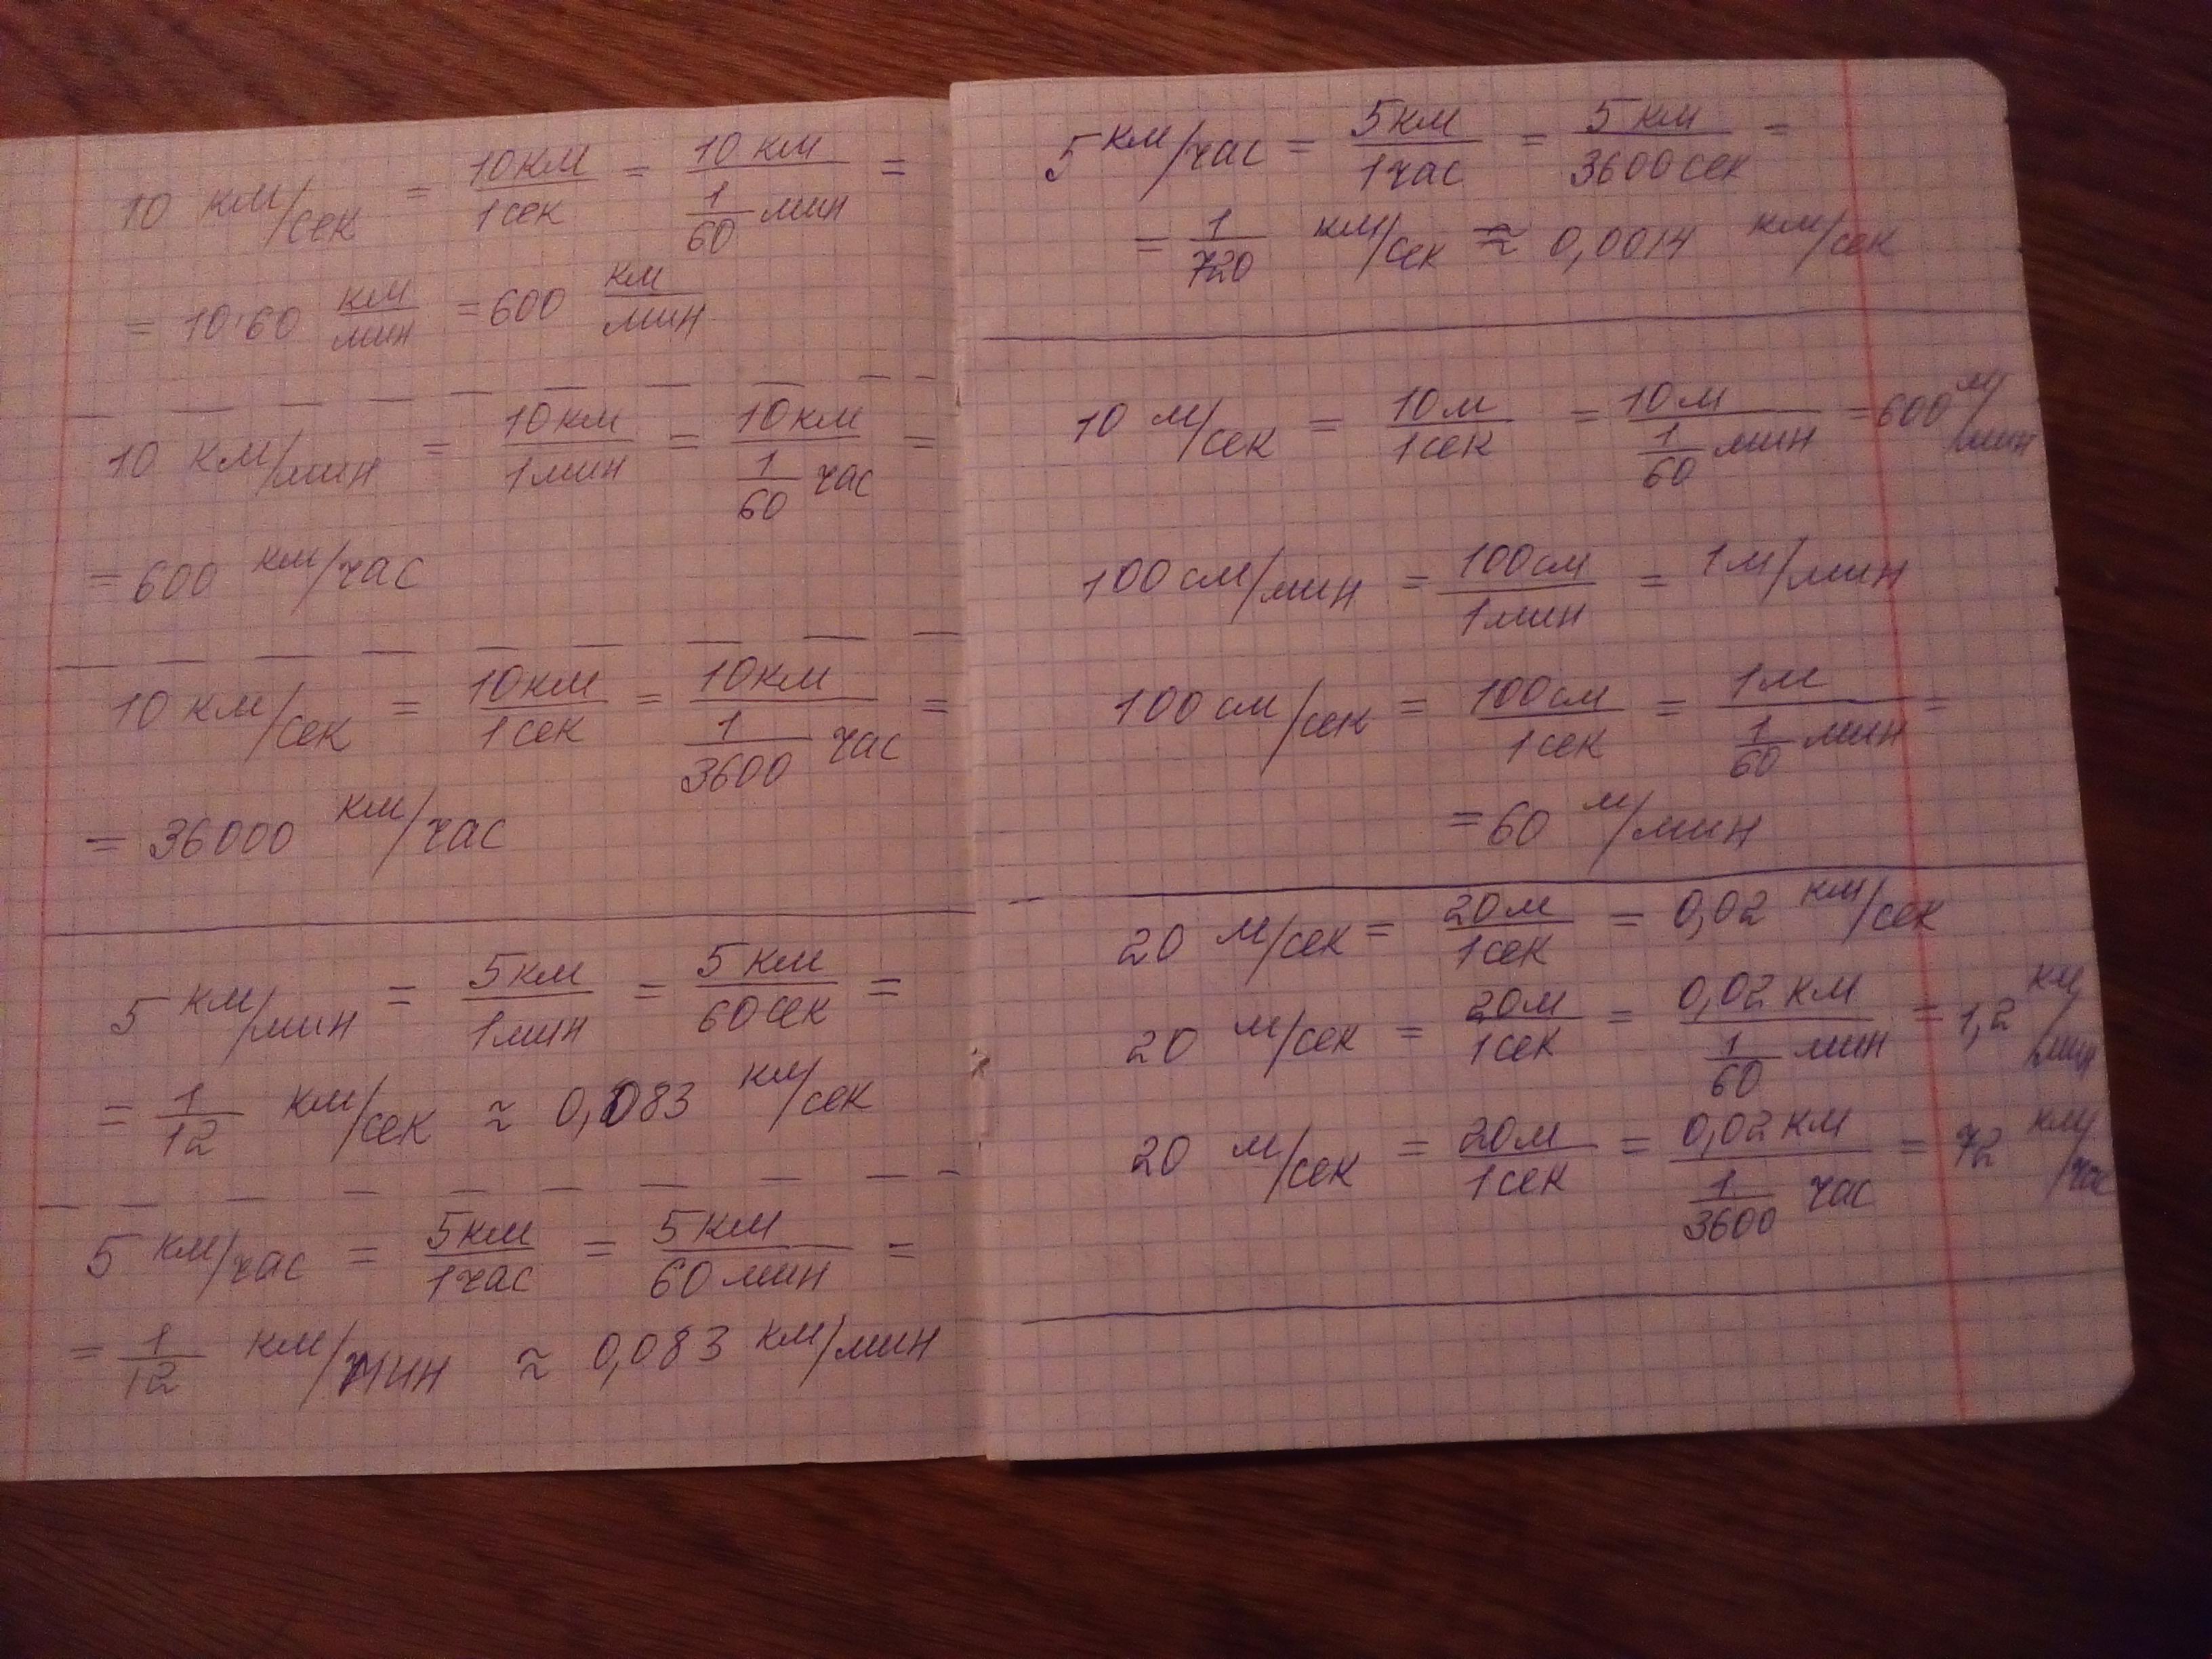 10 км/сек = 10км/1сек = 10 км/(1/60 мин) =
= 10·60 км/мин = 600 км/мин
10 км/мин = 10км/1мин = 10км/(1/60 час) =
= 600 км/час
10 км/сек = 10км/1сек = 10км/(1/3600 час) =
= 36000 км/час
5 км/мин = 5км/1мин = 5 км/60сек =
= 1/12 км/сек ≈ 0,083 км/сек
5 км/час = 5км/1час = 5 км/60 мин =
= 1/12 км/мин ≈ 0,083 км/мин
5 км/час = 5км/1час = 5 км/3600сек =
= 1/720 км/сек ≈ 0,0014 км/сек
10 м/сек = 10м/1сек = 10м/(1/60 мин) = 600 м/мин
100 см/мин = 100см/1мин = 1м/мин
100 см/сек = 100см/1сек = 1м/(1/60 мин) =
= 60 м/мин
20 м/сек = 20м/1сек = 0,02 км/сек
20 м/сек = 20м/1сек = 0,02 км/(1/60 мин) = 1,2 км/мин
20 м/сек = 20м/1сек = 0,02 км/(1/3600 час) = 72 км/час